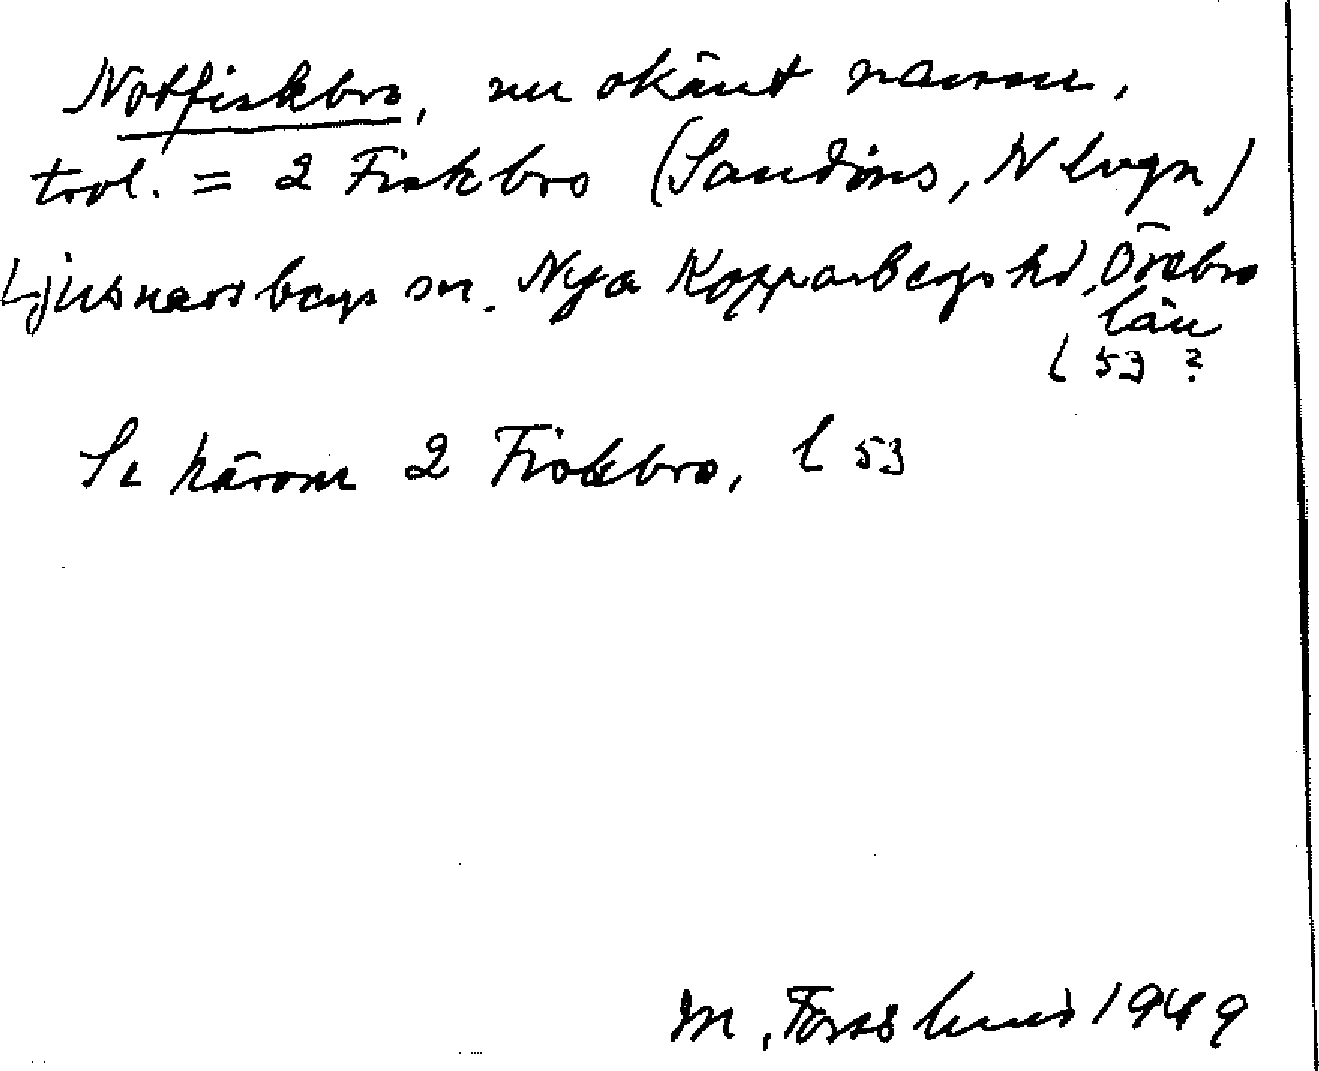 Notfiskbro, nu okänt namn,
trol. = 2 Fiskbro (Sandöns, N lvgn)
Ljusnarsbergs sn. Nya Kopparbergs hd, Örebro
län
l 53 ?
Se härom 2 Fiskbro, l 53
M. Forslund 1949